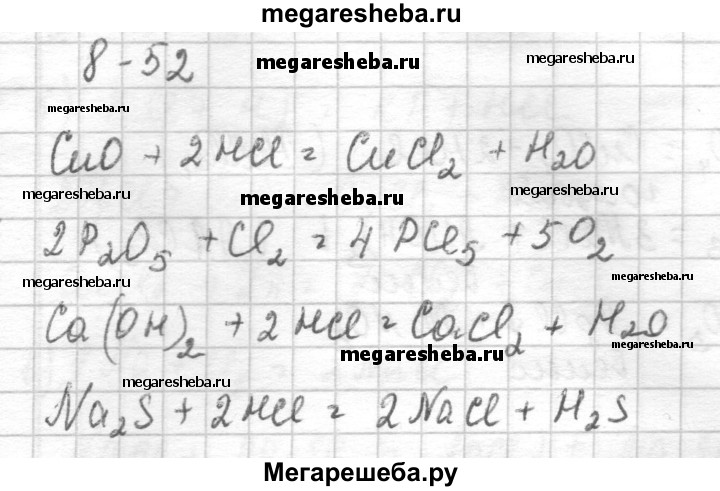 megaresheba.ru
8-52
megaresheba.ru
megaresheba.ru
CuO + 2HCl = CuCl₂ + H₂O
megaresheba.ru
megaresheba.ru
2P₂O₅ + Cl₂ = 4PCl₅ + 5O₂
megaresheba.ru
megaresheba.ru
Ca(OH)₂ + 2HCl = CaCl₂ + H₂O
megaresheba.ru
megaresheba.ru
Na₂S + 2HCl = 2NaCl + H₂S
Мегарешеба.ру